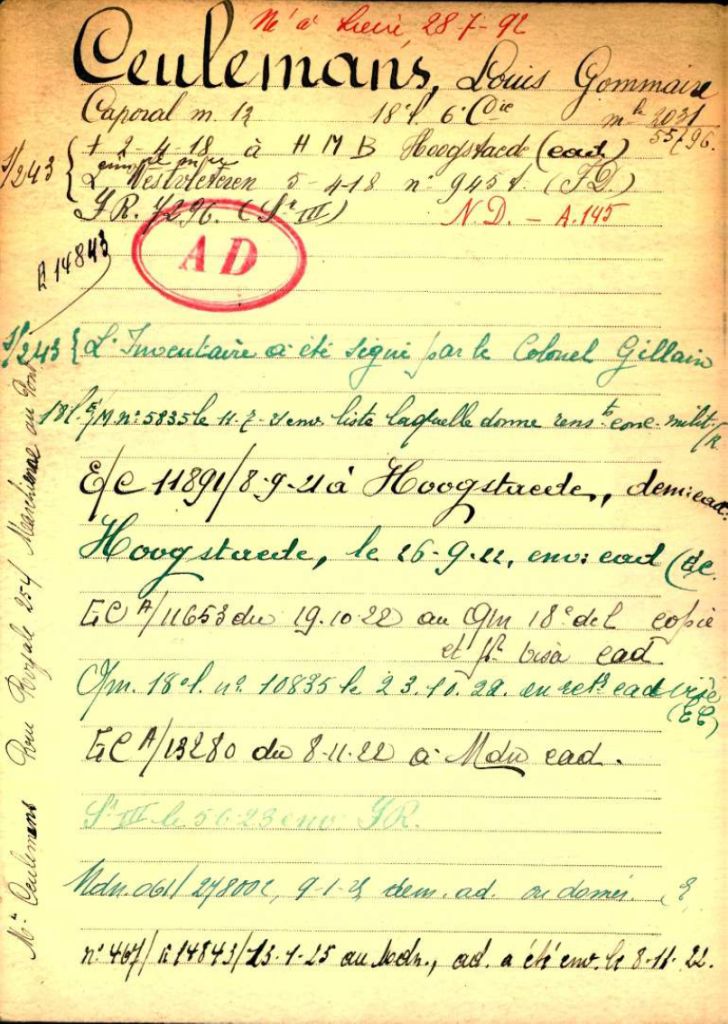 Né à Lierre 28-7-92
Ceulemans, Louis Gommaire
Caporal m. 12 18e l. 6e Cie mle 2031
55796.
S/243 { † 2-4-18 à H M B Hoogstaede (cad)
L. Westvleteren 5-4-18 n° 945 t. (F.D.)
F.R. 7296. (Sn III) N.D. - A.145
A D
R 14843
S/243 { L'Inventaire a été signé par le Colonel Gillain
18 l. n° 5835 le 11-7-21 env. liste laquelle donne rens. ts conc. milit.
E/C 11891/8-9-21 à Hoogstaede, dem: cad.
Hoogstaede, le 26-9-22, env: cad (EC.
EC A/11653 du 19.10.22 au Qm 18e de l copie
et pr visa cad
Qm. 18e l. n° 10835 le 23.10.22. en ret. cad visé
(EC)
EC A/13280 du 8-11-22 à Mdn cad.
Sn III le 5 6 23 env. F.R.
Mdn. 061/278002, 9-1-25 dem. ad.
n° 467/R 14843/13-1-25 au Mdn., ad. a été env. le 8-11-22.
Mr Ceulemans Rue Royale 254 Marchienne au Pont